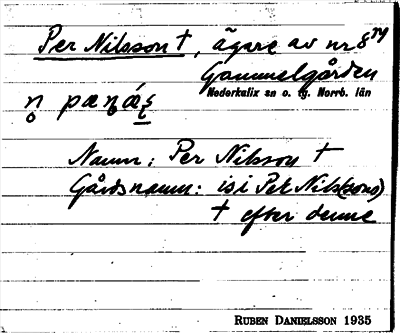 Per Nilsson †, ägare av nr 8⁷⁴
Gammelgården
Nederkalix sn o. tg. Norrb. län
Namn: Per Nilsson †
Gårdsnamn: isi Pet Nils(sons)
† efter denne
RUBEN DANIELSSON 1935